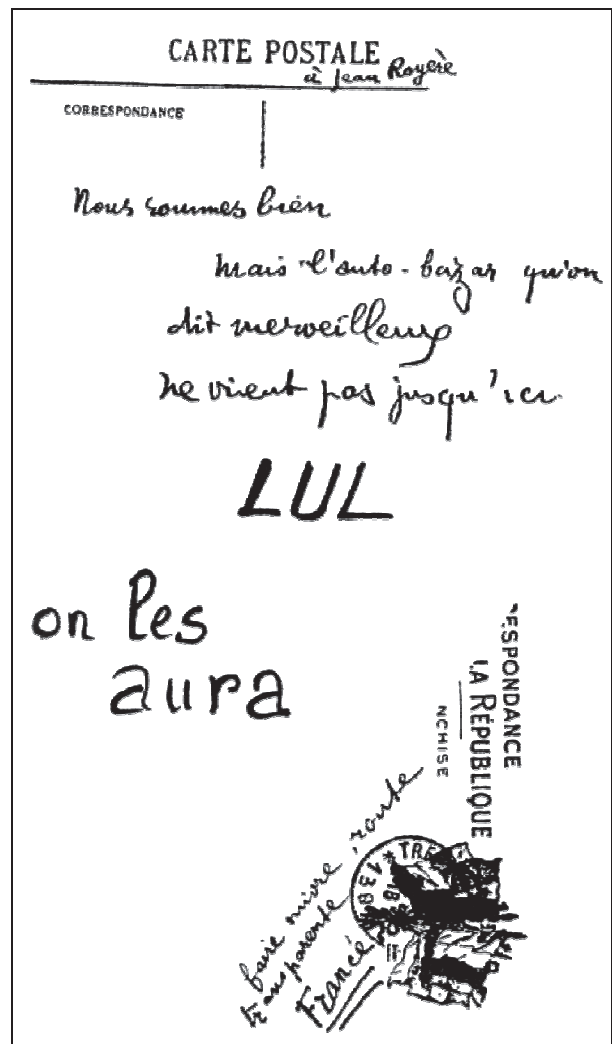 CARTE POSTALE
à Jean Royère
CORRESPONDANCE
Nous sommes bien
mais l'auto-bazar qu'on
dit merveilleux
ne vient pas jusqu'ici
LUL
on les
aura
ESPONDANCE
LA RÉPUBLIQUE
NCHISE
TRE
* 13 8
faire suivre route
transparente
France